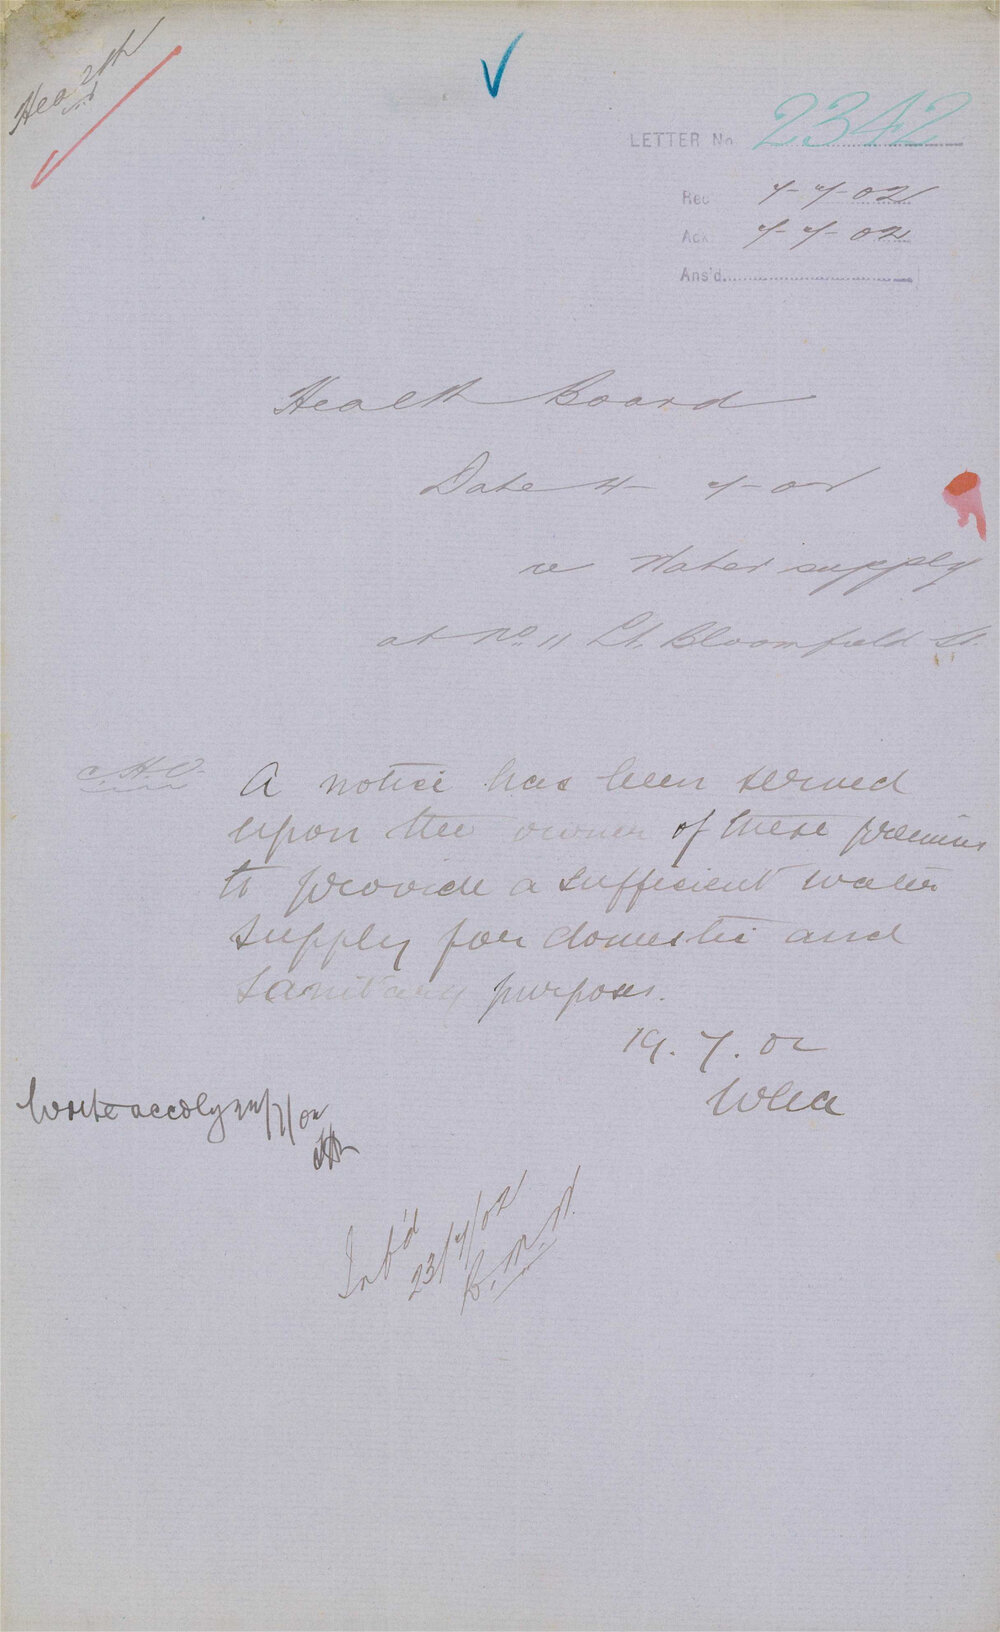 Health
LETTER No 2342
Rec 7-7-02
Ack 7-7-02
Ans'd
Health Board
Date 4-7-02
re Water supply
at No. 11 Lt. Bloomfield St.
H.O.
A notice has been served
upon the owner of these premises
to provide a sufficient water
supply for domestic and
sanitary purposes.
19.7.02
Write accdly 22/7/02
Inf'd
23/7/02